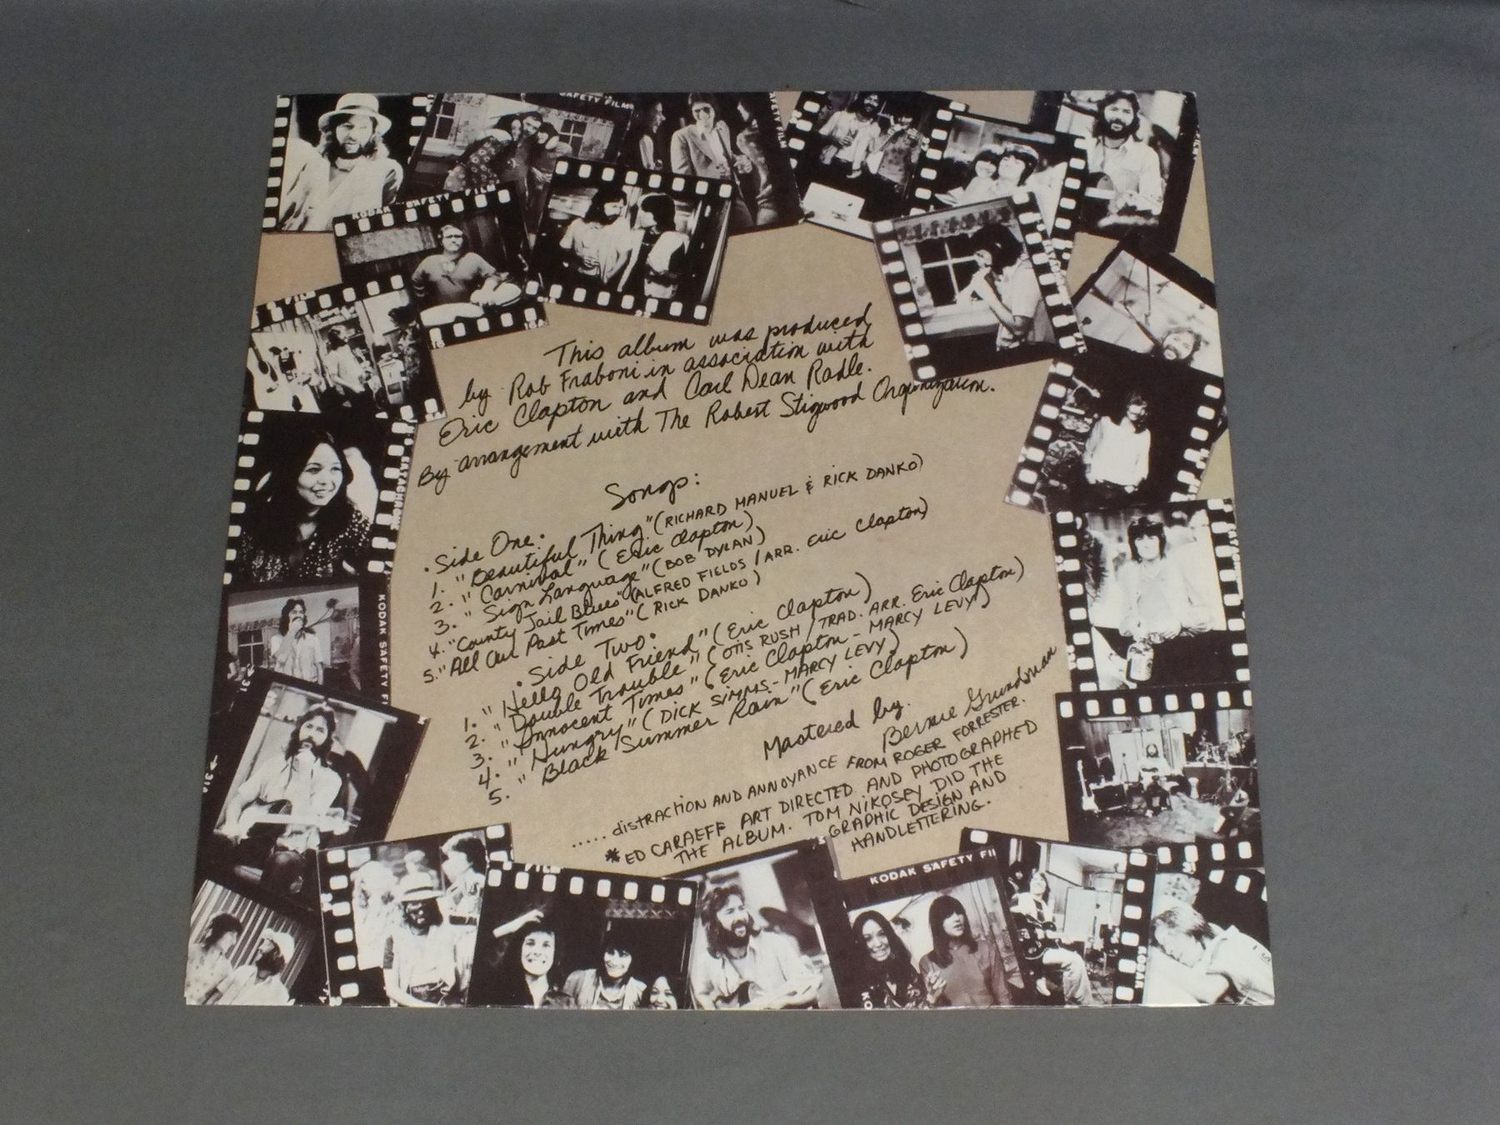 This album was produced
by Rob Fraboni in association with
Eric Clapton and Carl Dean Radle.
By arrangement with The Robert Stigwood Organization.
Songs:
• Side One •
1. "Beautiful Thing" (RICHARD MANUEL & RICK DANKO)
2. "Carnival" (Eric Clapton)
3. "Sign Language" (BOB DYLAN)
4. "County Jail Blues" (ALFRED FIELDS / ARR. Eric Clapton)
5. "All Our Past Times" (RICK DANKO)
• Side Two •
1. "Hello Old Friend" (Eric Clapton)
2. "Double Trouble" (OTIS RUSH / TRAD. ARR. Eric Clapton)
3. "Innocent Times" (Eric Clapton - MARCY LEVY)
4. "Hungry" (DICK SIMMS - MARCY LEVY)
5. "Black Summer Rain" (Eric Clapton)
Mastered by:
Bernie Grundman
..... distraction and annoyance from ROGER FORRESTER.
* ED CARAEFF ART DIRECTED AND PHOTOGRAPHED
THE ALBUM. TOM NIKOSEY DID THE
GRAPHIC DESIGN AND
HANDLETTERING.
SAFETY FILM
KODAK SAFETY FILM
KODAK SAFETY
KODAK SAFETY FI